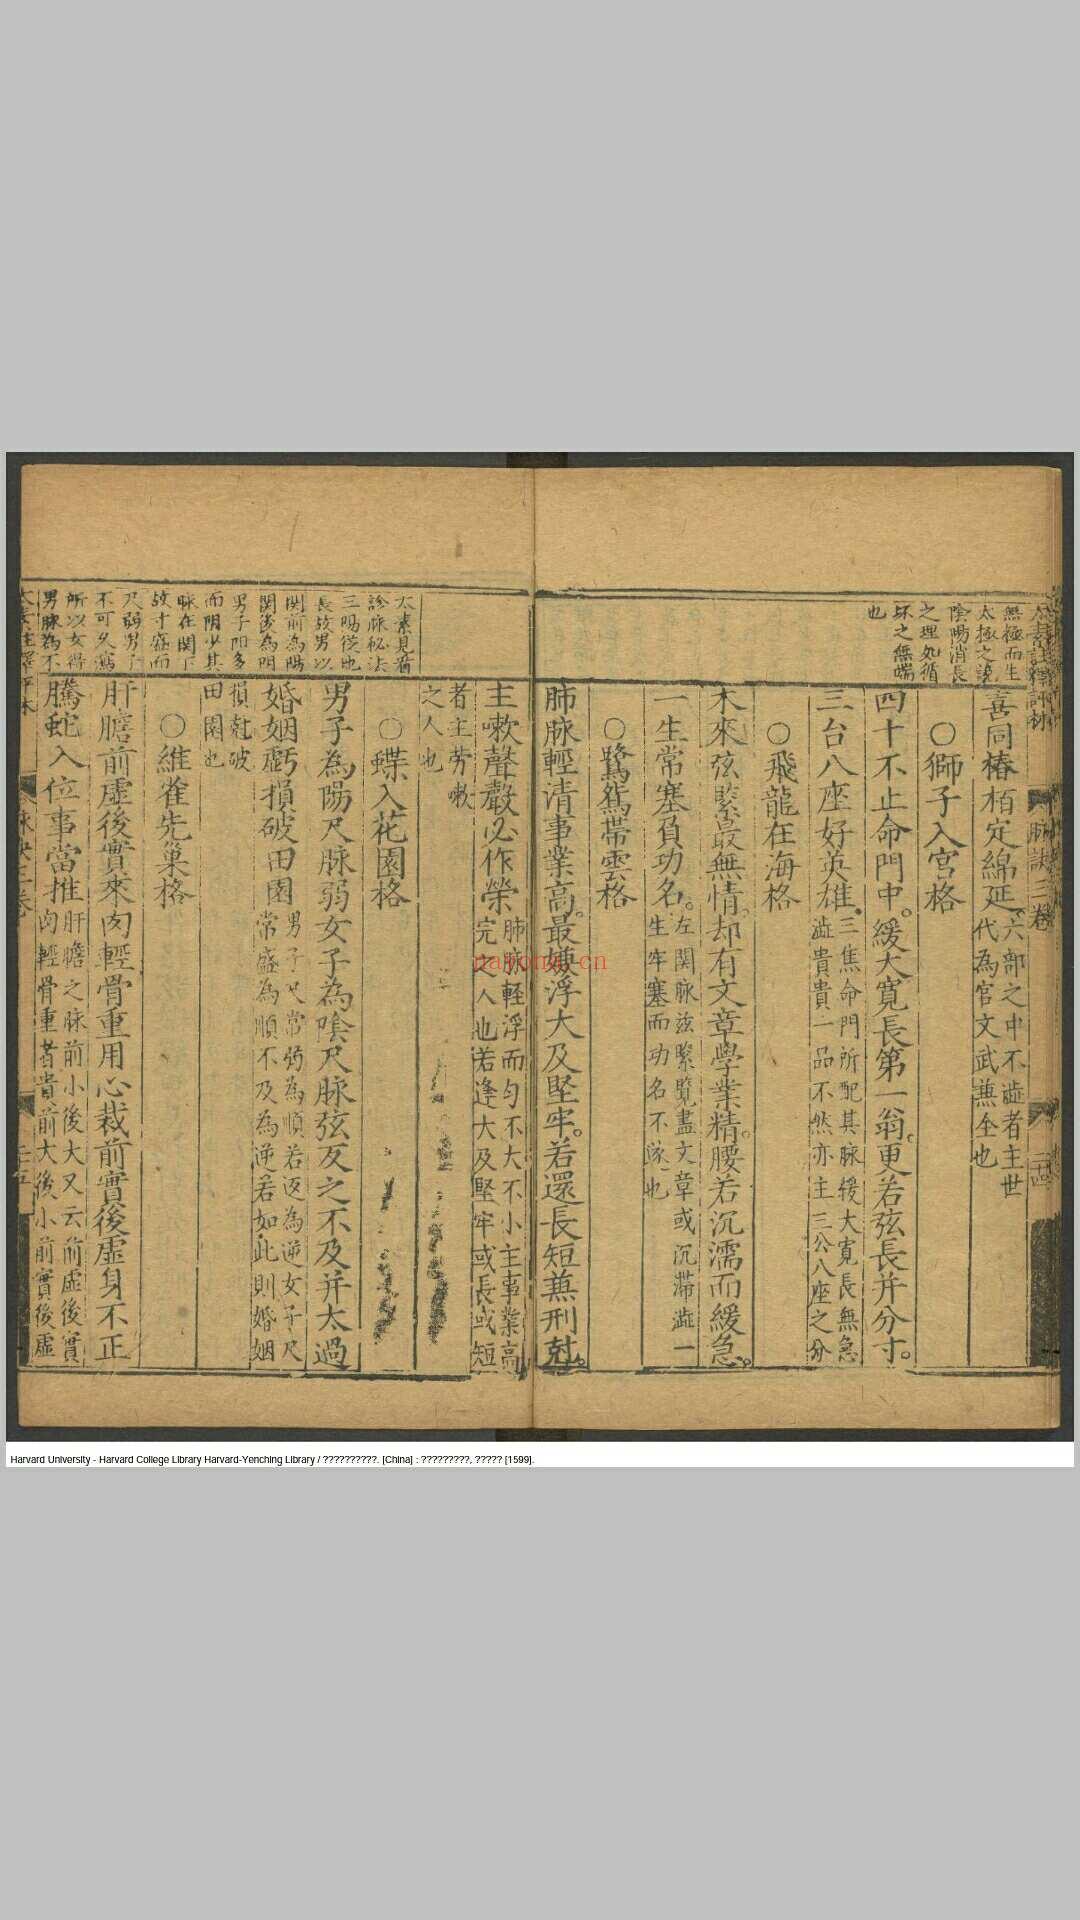 無極而生
太極之說
陰陽消長
之理如循
环之無端
也
脉訣三卷
喜同椿栢定綿延
六部之中不澁者主世
代為官文武兼全也
〇獅子入宮格
四十不止命門中。緩大寬長第一翁。更若弦長并分寸。
三台八座好英雄。
三焦命門所配其脉緩大寬長無急
澁貴貴一品不然亦主三公八座之分
〇飛龍在海格
木來弦緊最無情。却有文章學業精。腰若沉濡而緩急。
一生常塞負功名。
左関脉弦緊覽盡文章或沉滞澁一
生牢塞而功名不遂也
〇鷺鴛帶雲格
肺脉輕清事業高。最嫌浮大及堅牢。若還長短兼刑尅。
太素見有
診脉秘法
三陽從也
長故男以
関前為陽
関後為阴
男子阳多
而阴少其
脉在関下
故寸盛而
尺弱男子
不可久瀉
所以女得
男脉為不
主嗽聲聲必作榮
肺脉輕浮而匀不大不小主事業高
完之人也若逢大及堅牢或長或短
者主劳嗽
之人也
〇蝶入花園格
男子為陽尺脉弱女子為陰尺脉弦反之不及并太過
婚姻虧損破田園
男子尺常弱為順若返為逆女子尺
常盛為順不及為逆若如此則婚姻
損尅破
田園也
〇維雀先巢格
肝膽前虛後實來肉輕骨重用心裁前實後虛身不正
騰蛇入位事當推
肝膽之脉前小後大又云前虛後實
肉輕骨重者貴前大後小前實後虛
nayona.cn
Harvard University - Harvard College Library Harvard-Yenching Library / ??????????. [China] : ?????????, ????? [1599].